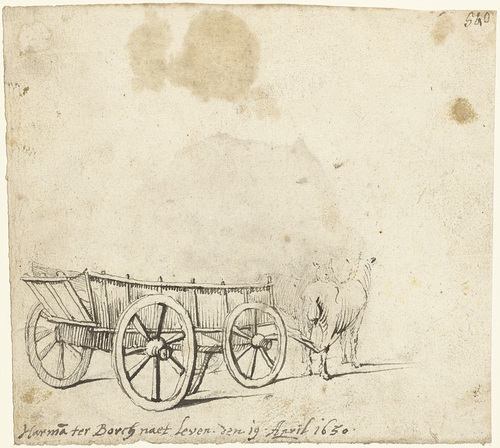 Harmā ter Borch naet leven. den 19 April 1650.